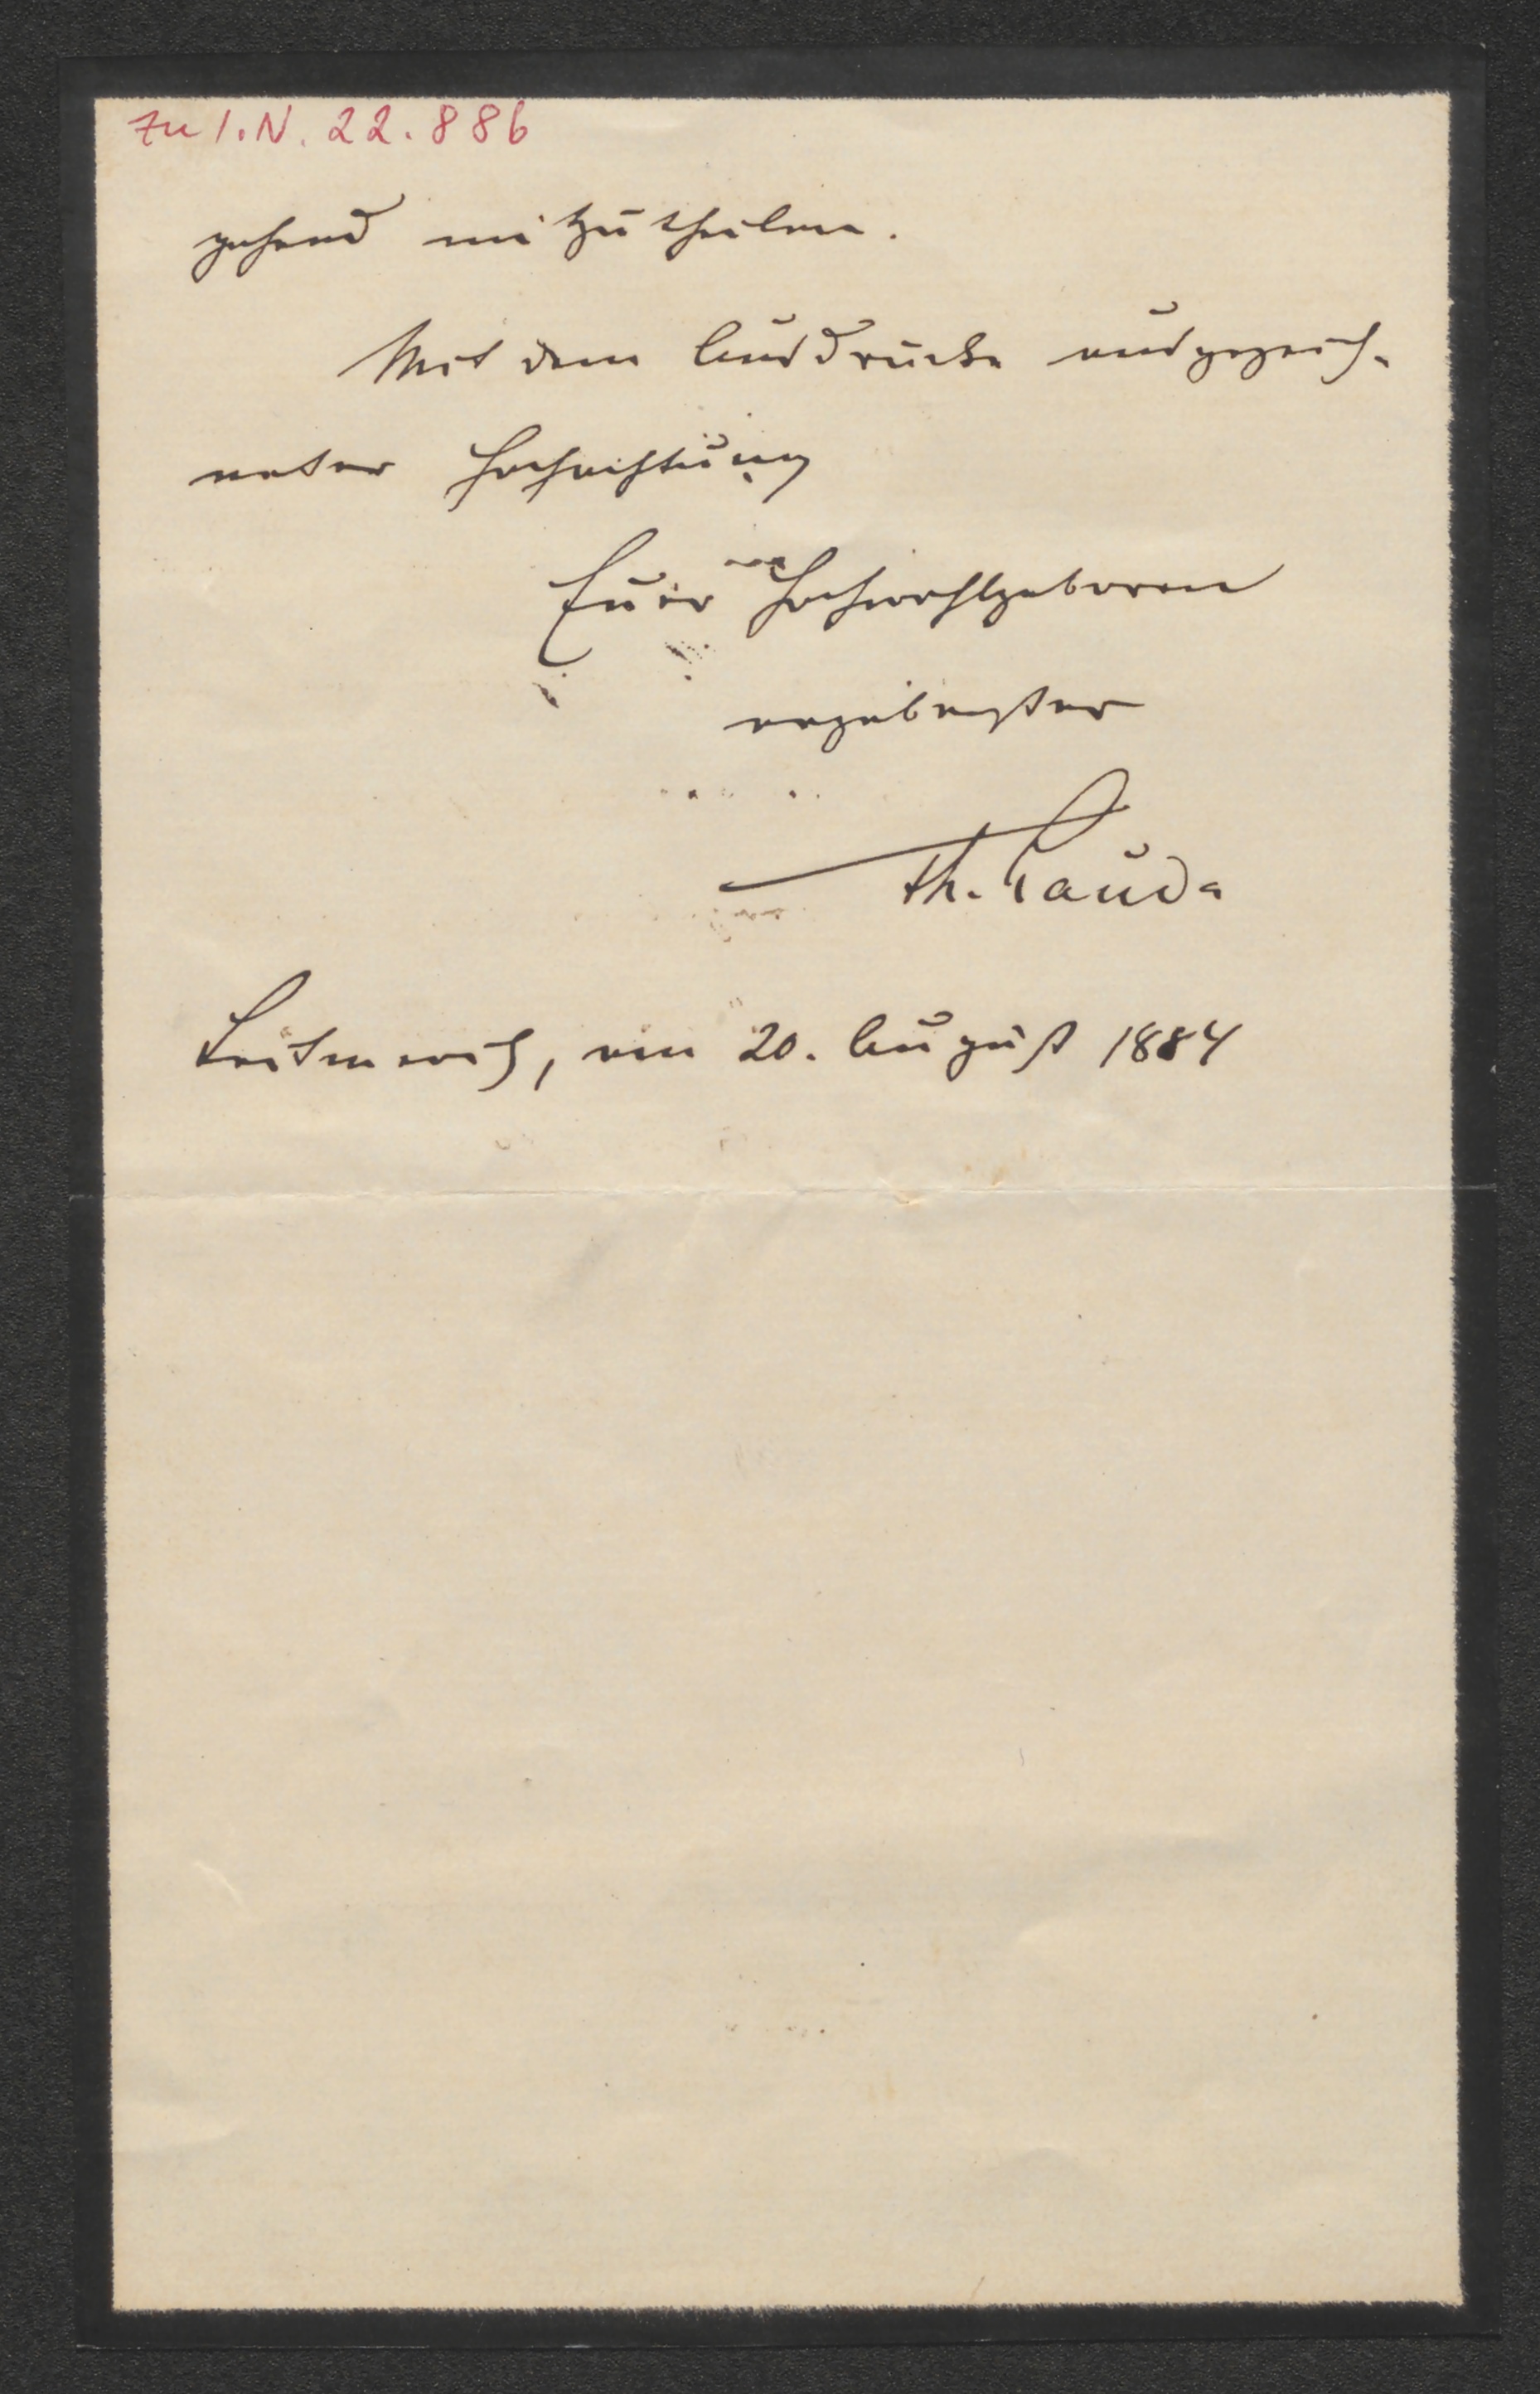 Zu I.N. 22.886
gehend mitzutheilen.
Mit dem Ausdrucke ausgezeich-
neter Hochachtung
Euer Hochwohlgeboren
ergebenster
Th. Pauda
Leitmeritz, am 20. August 1884